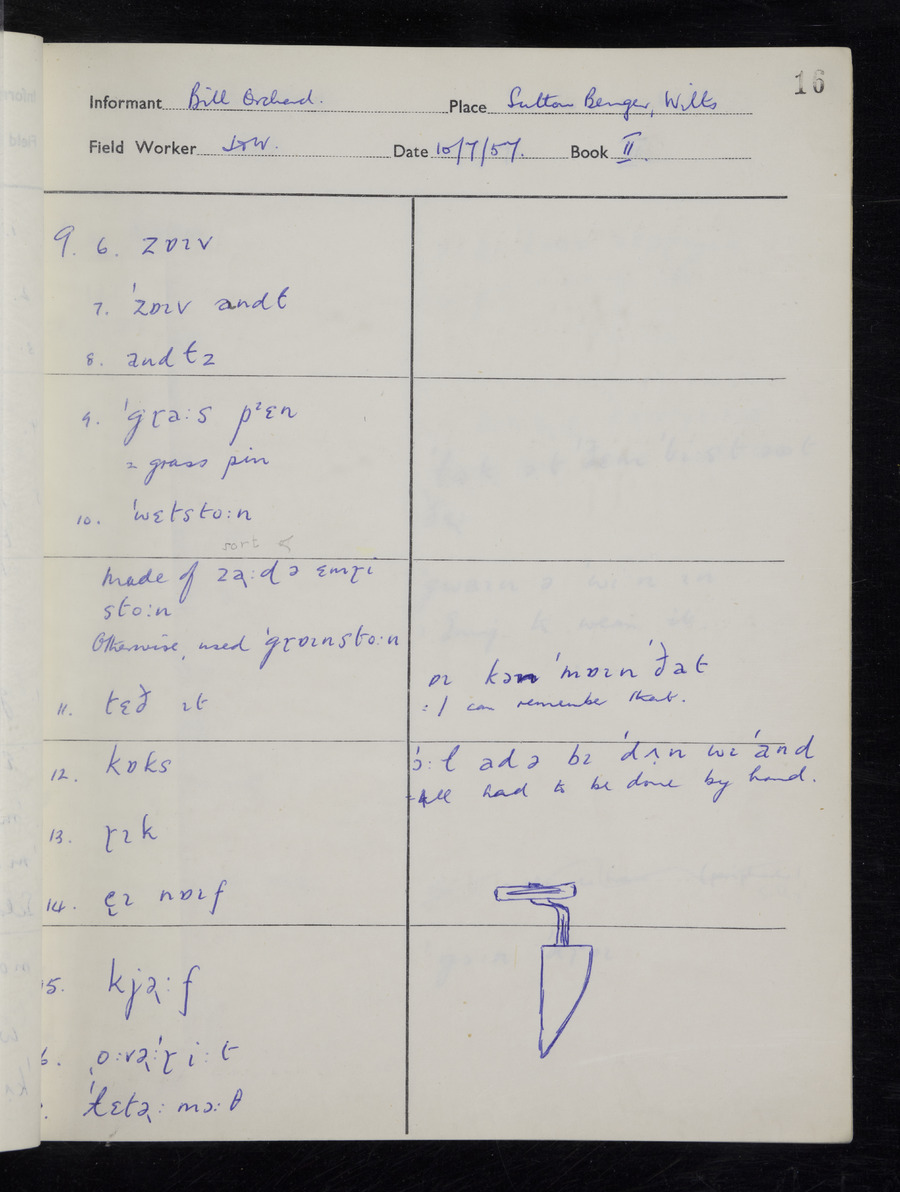 16
Informant Bill Orchard. Place Sutton Benger, Wilts
Field Worker Date 10/7/57. Book II
9. 6. zɒɪv
7. ˈzɒɪv andɫ
8. andɫz
9. ˈgɽa:s pᶻɛn
= grass pin
10. ˈwɛtsto:n
sort
made of ə ɛmɽi
sto:n
Otherwise, used ˈgɽɒɪnsto:n
11. tɛð ɪt
ɒɪ kən ˈmɒɪn ˈðat
= I can remember that.
12. kɒks
ˈɔ:ɫ adə bɪ ˈdʌn wɪ ˈand
= All had to be done by hand.
13. ɽɪk
14. nɒɪf
15. kjə˞:f
6.